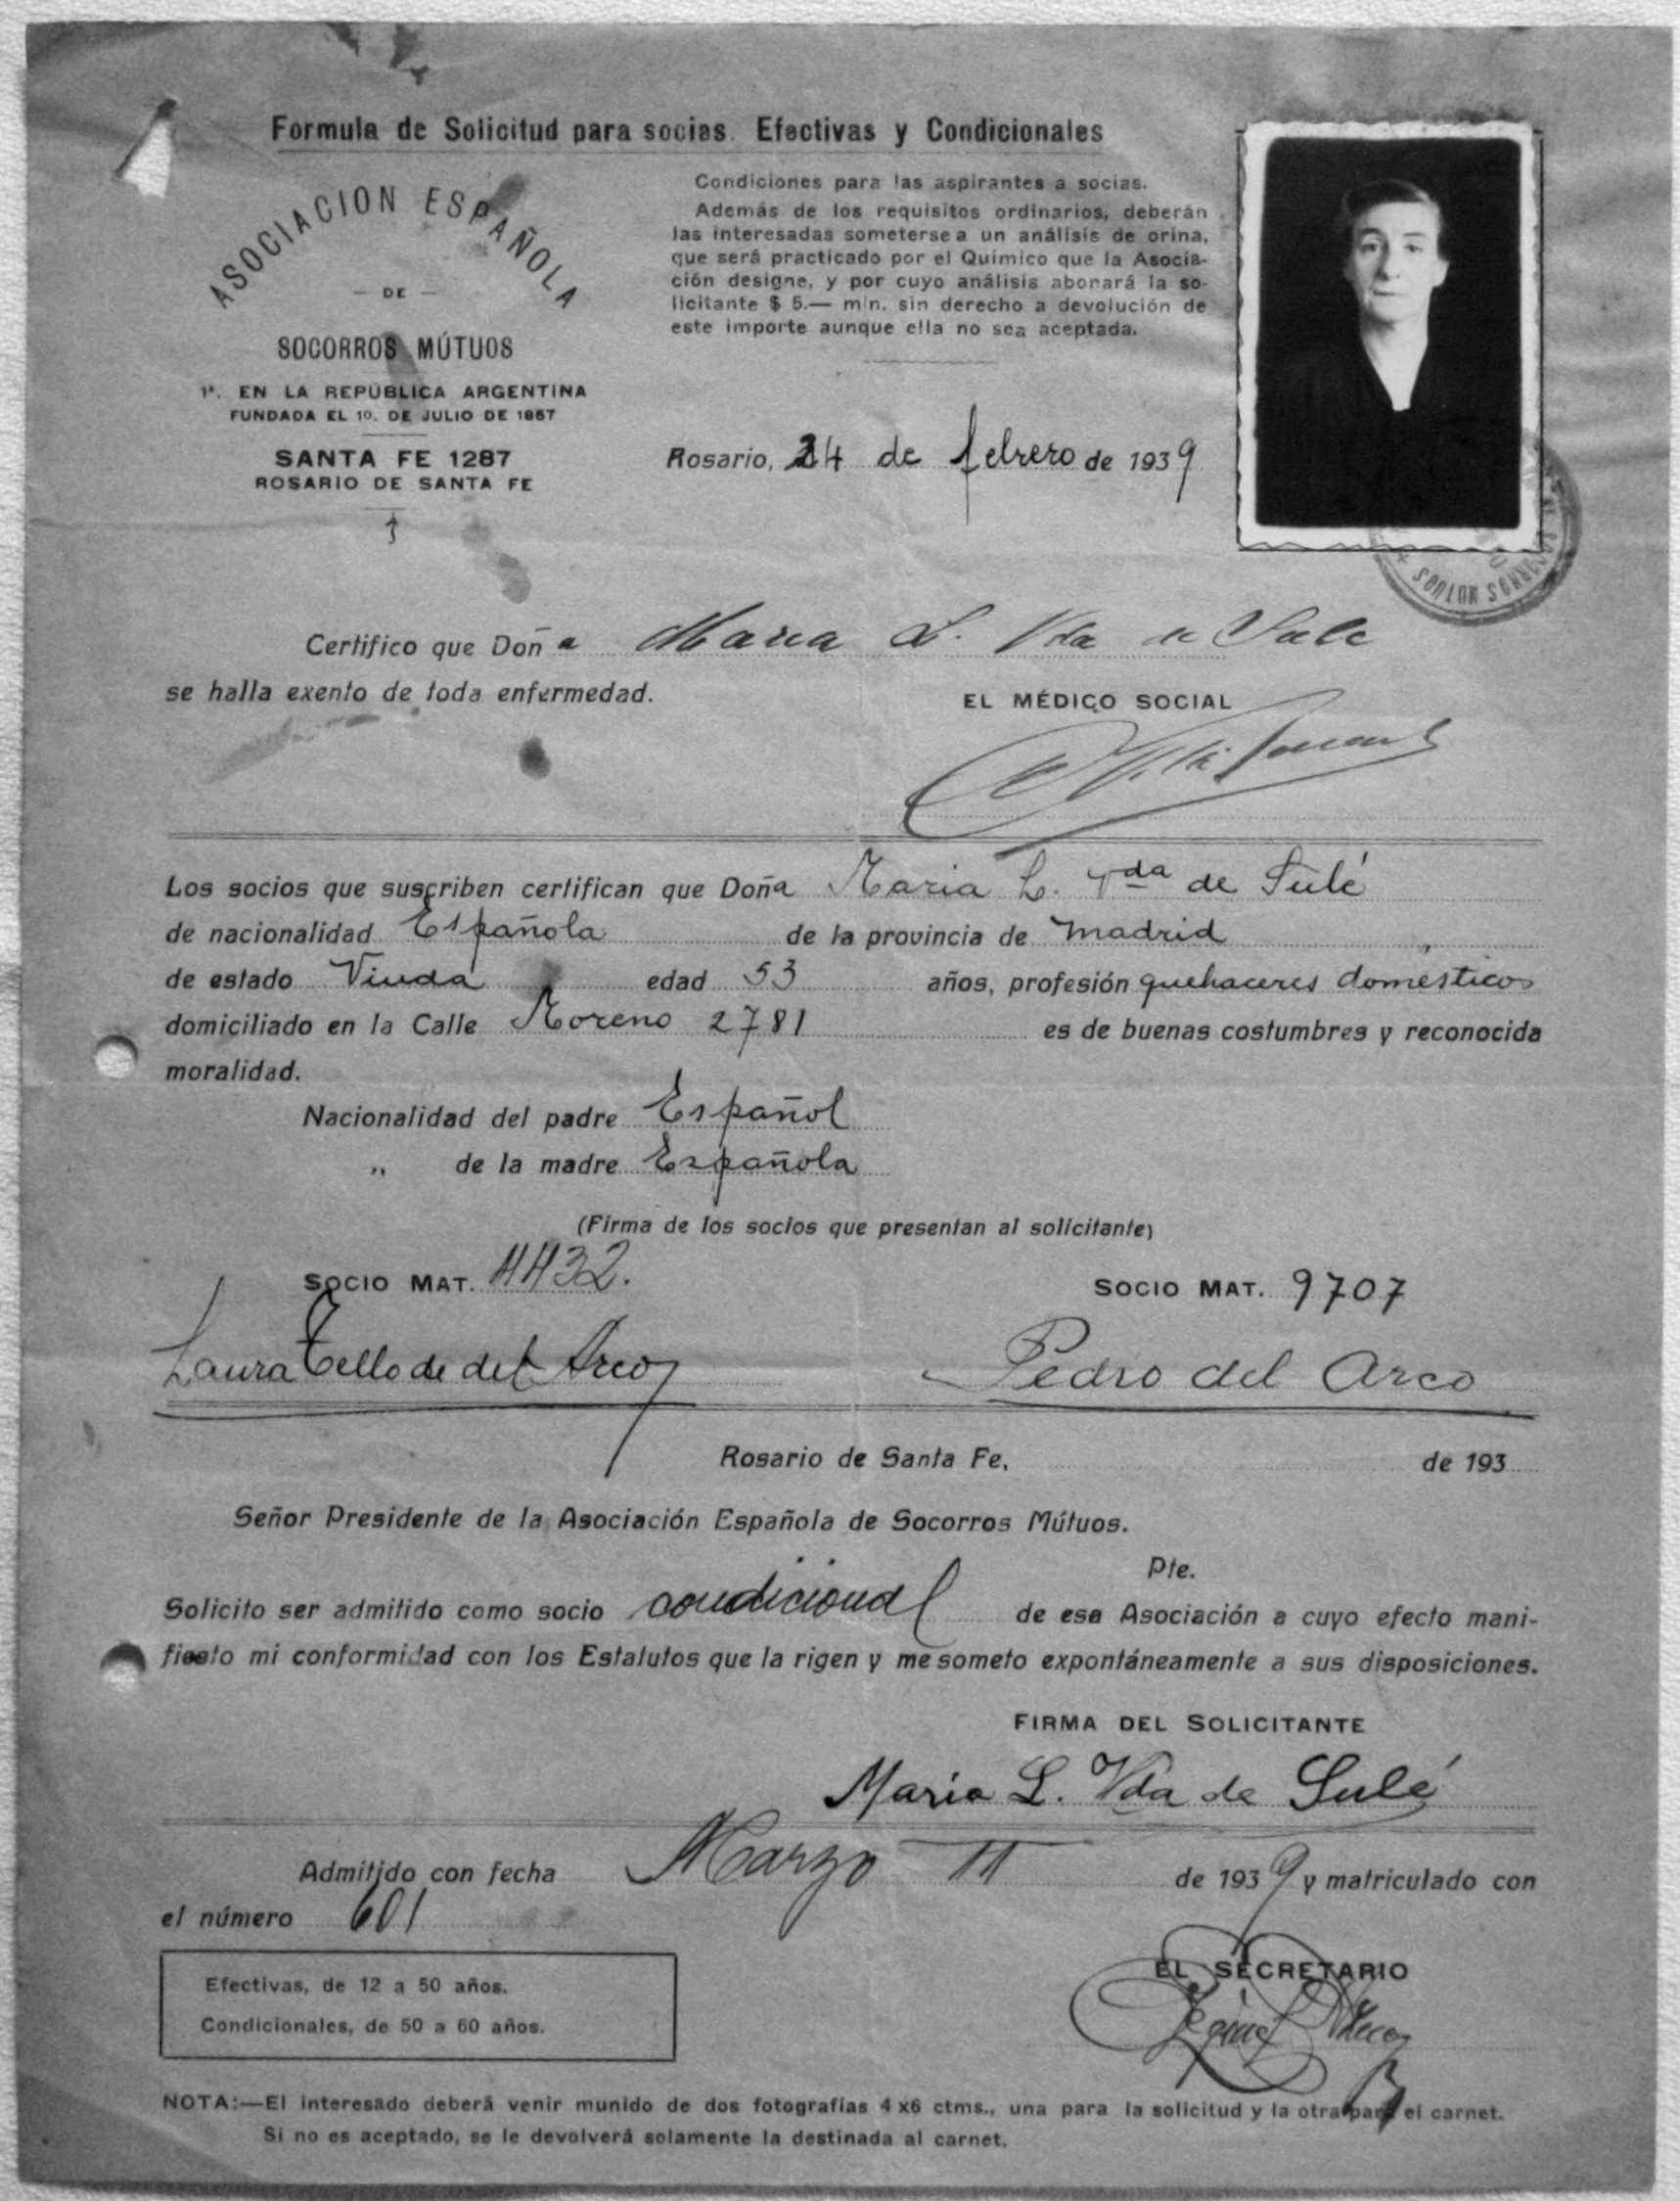 Formula de Solicitud para socias Efectivas y Condicionales
ASOCIACION ESPAÑOLA
— DE —
SOCORROS MÚTUOS
1ª. EN LA REPÚBLICA ARGENTINA
FUNDADA EL 10. DE JULIO DE 1857
SANTA FE 1287
ROSARIO DE SANTA FE
Condiciones para las aspirantes a socias.
Además de los requisitos ordinarios, deberán
las interesadas someterse a un análisis de orina,
que será practicado por el Químico que la Asocia-
ción designe, y por cuyo análisis abonará la so-
licitante $ 5.— m/n. sin derecho a devolución de
este importe aunque ella no sea aceptada.
Rosario, 24 de febrero de 1939
SOCORROS MUTUOS
Certifico que Doña Maria L. Vda de Sule
se halla exento de toda enfermedad.
EL MÉDICO SOCIAL
Los socios que suscriben certifican que Doña Maria L. Vda de Sulé
de nacionalidad Española de la provincia de Madrid
de estado Viuda edad 53 años, profesión quehaceres domésticos
domiciliado en la Calle Moreno 2781 es de buenas costumbres y reconocida
moralidad.
Nacionalidad del padre Español
„ de la madre Española
(Firma de los socios que presentan al solicitante)
SOCIO MAT. 4432. SOCIO MAT. 9707
Laura Tello de del Arco Pedro del Arco
Rosario de Santa Fe, de 193
Señor Presidente de la Asociación Española de Socorros Mútuos.
Pte.
Solicito ser admitido como socio condicional de esa Asociación a cuyo efecto mani-
fiesto mi conformidad con los Estatutos que la rigen y me someto expontáneamente a sus disposiciones.
FIRMA DEL SOLICITANTE
Maria L. Vda de Sulé
Admitido con fecha Marzo 11 de 1939 y matriculado con
el número 601
EL SECRETARIO
Efectivas, de 12 a 50 años.
Condicionales, de 50 a 60 años.
NOTA:—El interesado deberá venir munido de dos fotografías 4 x6 ctms., una para la solicitud y la otra para el carnet.
Si no es aceptado, se le devolverá solamente la destinada al carnet.